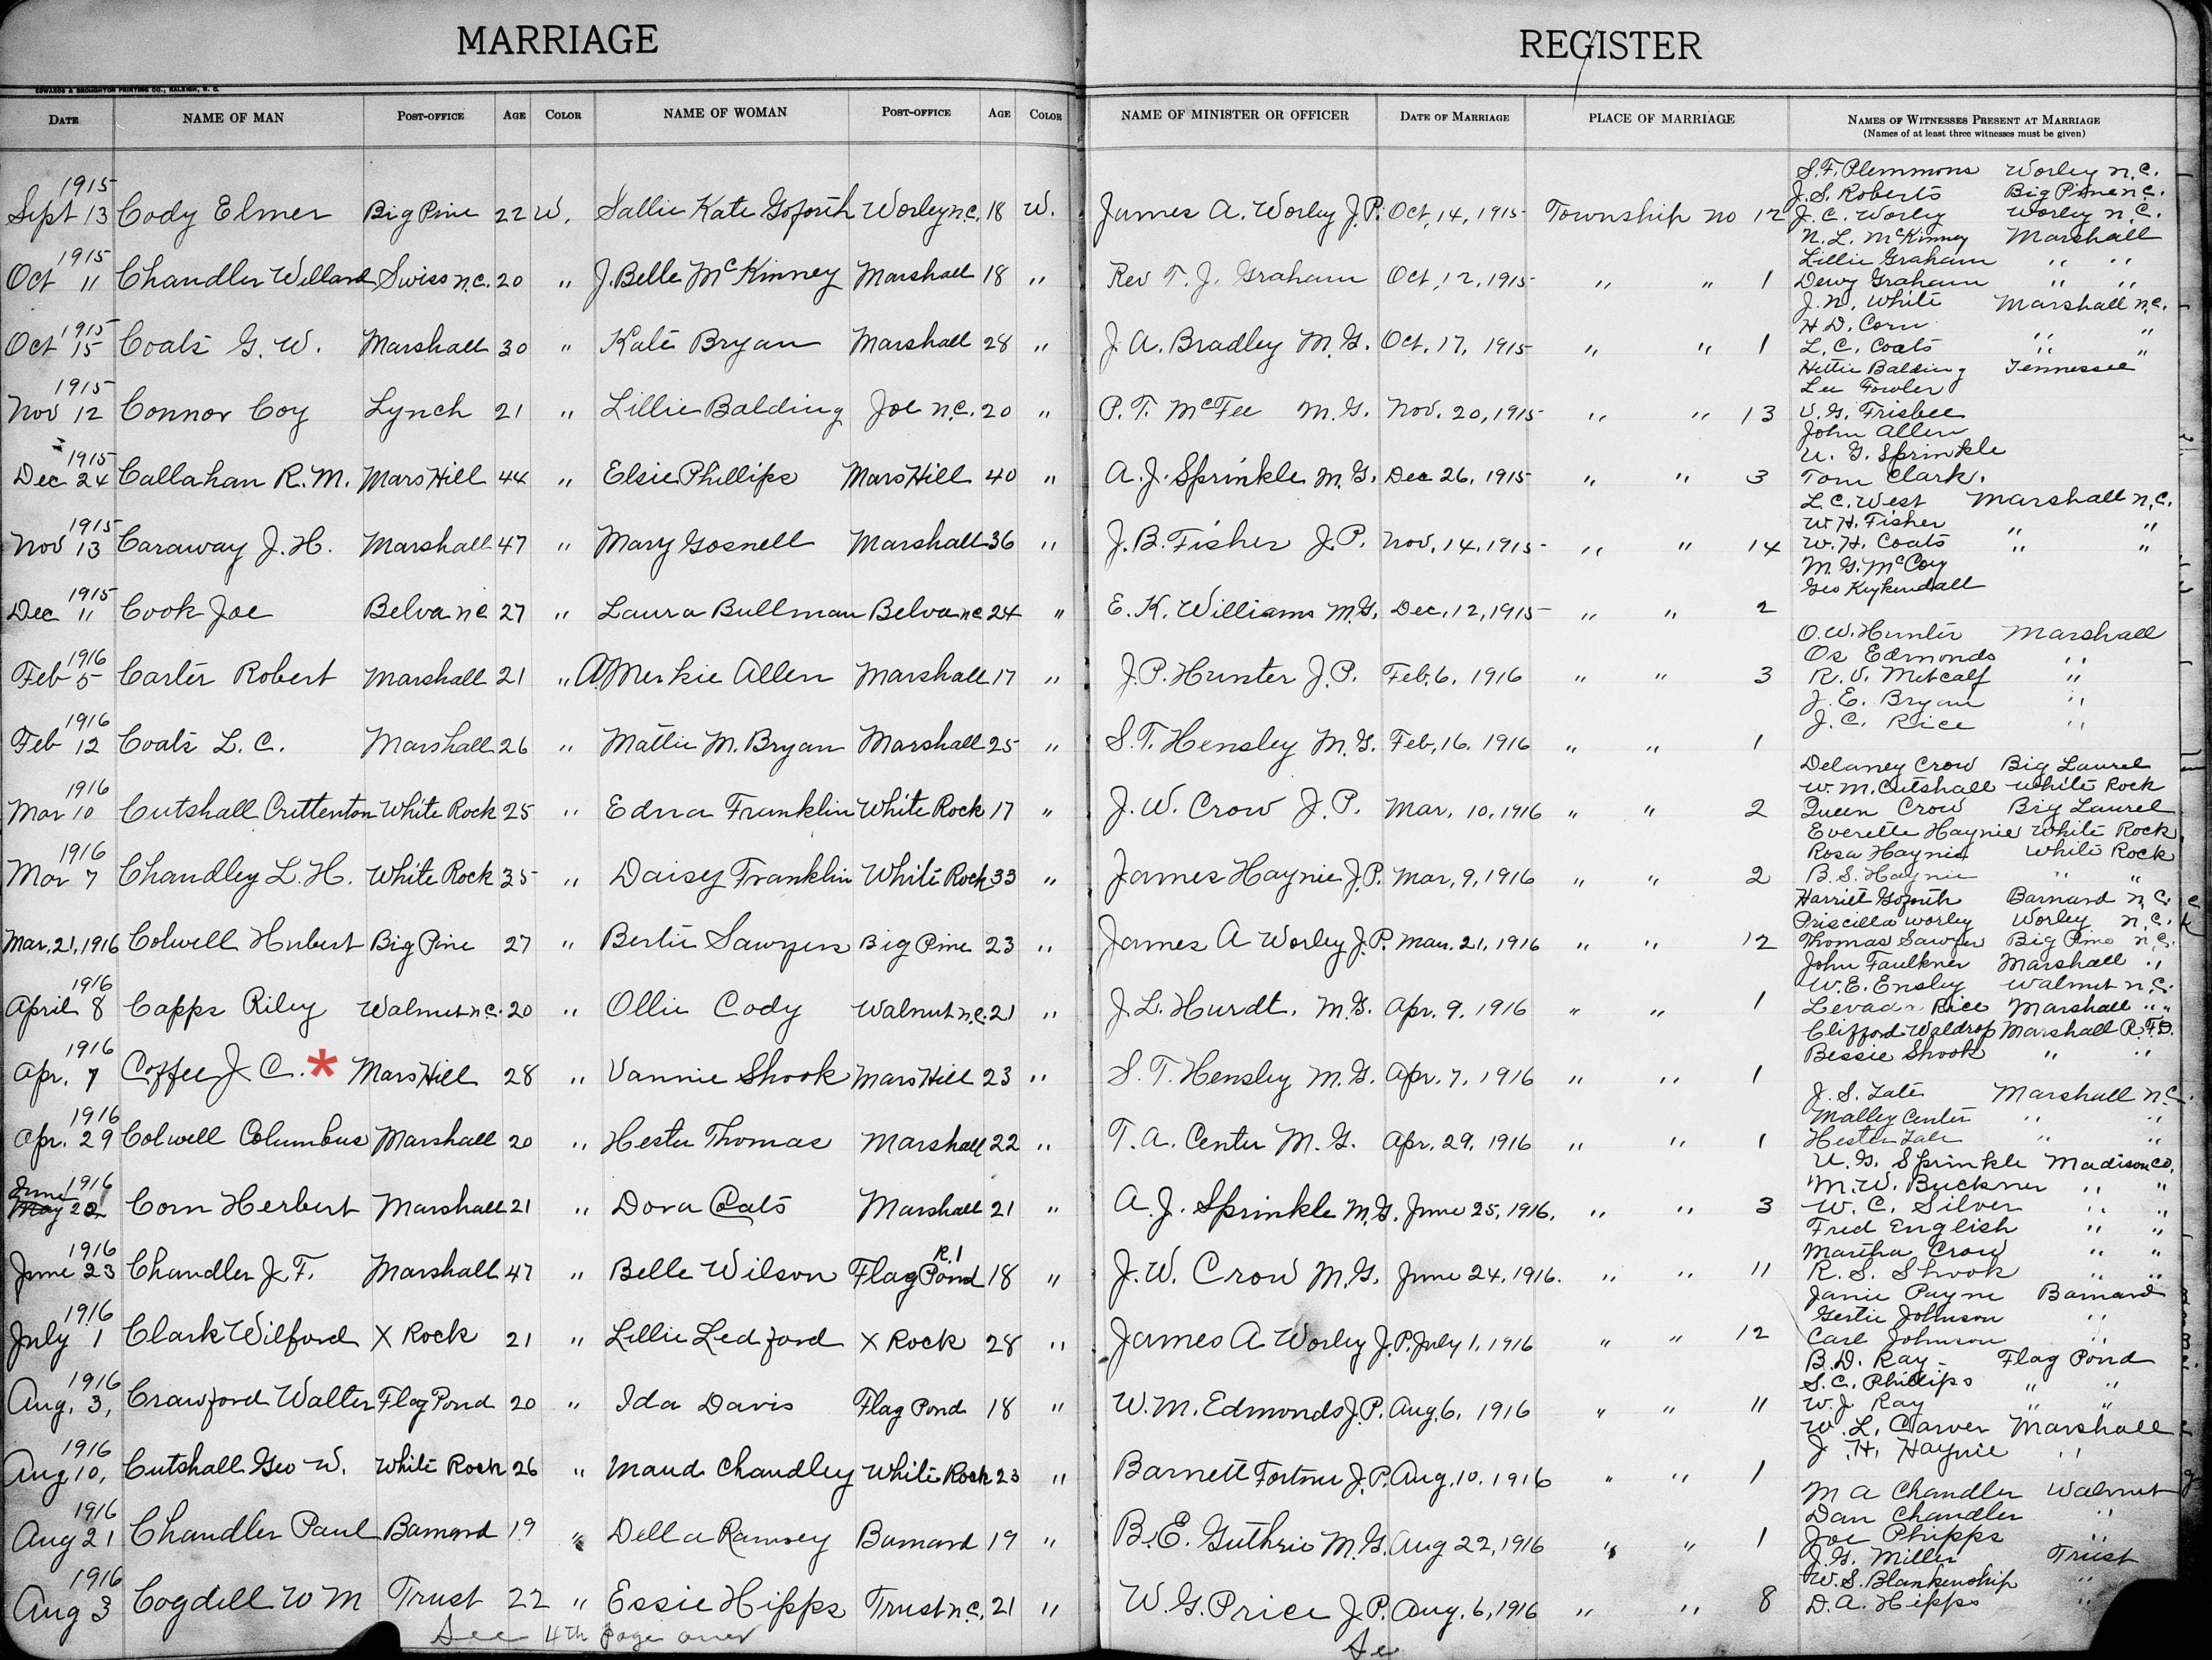 MARRIAGE REGISTER
EDWARDS & BROUGHTON PRINTING CO., RALEIGH, N. C.
DATE NAME OF MAN POST-OFFICE AGE COLOR NAME OF WOMAN POST-OFFICE AGE COLOR NAME OF MINISTER OR OFFICER DATE OF MARRIAGE PLACE OF MARRIAGE NAMES OF WITNESSES PRESENT AT MARRIAGE
(Names of at least three witnesses must be given)
1915 Sept 13 Cody Elmer Big Pine 22 W. Sallie Kate Goforth Worley n.c. 18 W. James A. Worley J.P. Oct, 14, 1915 Township no 12
S.F. Plemmons Worley n.c.
J.S. Roberts Big Pine n.c.
J.C. Worley Worley n.c.
1915 Oct 11 Chandler Willard Swiss n.c. 20 " J. Belle McKinney Marshall 18 " Rev T. J. Graham Oct, 12, 1915 " " 1
N.L. McKinney Marshall
Lillie Graham " "
Dewy Graham " "
1915 Oct 15 Coats G. W. Marshall 30 " Kate Bryan Marshall 28 " J. A. Bradley M.G. Oct, 17, 1915 " " 1
J.N. White Marshall n.c.
H.D. Corn " "
L.C. Coats " "
1915 Nov 12 Connor Coy Lynch 21 " Lillie Balding Joe n.c. 20 " P. T. McFee M.G. Nov. 20, 1915 " " 13
Hettie Balding Tennessee
Lee Fowler
V.G. Frisbee
1915 Dec 24 Callahan R. M. Mars Hill 44 " Elsie Phillips Mars Hill 40 " A. J. Sprinkle M.G. Dec 26, 1915 " " 3
John Allen
U. G. Sprinkle
Tom Clark.
1915 Nov 13 Caraway J. H. Marshall 47 " Mary Gosnell Marshall 36 " J. B. Fisher J.P. Nov, 14, 1915 " " 14
L.C. West Marshall n.c.
W.H. Fisher " "
W.H. Coats " "
1915 Dec 11 Cook Joe Belva nc 27 " Laura Bullman Belva nc 24 " E. K. Williams M.G. Dec, 12, 1915 " " 2
M.G. McCoy
Geo Kuykendall
1916 Feb 5 Carter Robert Marshall 21 " A. Merkie Allen Marshall 17 " J. P. Hunter J.P. Feb. 6, 1916 " " 3
O.W. Hunter Marshall
Os Edmonds "
R.V. Metcalf "
1916 Feb 12 Coats L. C. Marshall 26 " Mattie M. Bryan Marshall 25 " S. T. Hensley M.G. Feb, 16, 1916 " " 1
J. E. Bryan "
J. C. Rice "
1916 Mar 10 Cutshall Crittenton White Rock 25 " Edna Franklin White Rock 17 " J. W. Crow J.P. Mar, 10, 1916 " " 2
Delaney Crow Big Laurel
W.M. Cutshall White Rock
Queen Crow Big Laurel
1916 Mar 7 Chandley L. H. White Rock 35 " Daisy Franklin White Rock 33 " James Haynie J.P. Mar, 9, 1916 " " 2
Everette Haynie White Rock
Rosa Haynie White Rock
B.S. Haynie " "
Mar. 21, 1916 Colwell Hubert Big Pine 27 " Bertie Sawyers Big Pine 23 " James A Worley J.P. Mar. 21, 1916 " " 12
Harriet Goforth Barnard n.c.
Priscilla Worley Worley n.c.
Thomas Sawyer Big Pine n.c.
1916 April 8 Capps Riley Walnut n.c. 20 " Ollie Cody Walnut n.c. 21 " J. L. Hurdt. M.G. Apr. 9, 1916 " " 1
John Faulkner Marshall "
W.E. Ensley Walnut n.c.
Rice Marshall " "
1916 Apr. 7 Coffee J. C. * Mars Hill 28 " Vannie Shook Mars Hill 23 " S. T. Hensley M.G. Apr. 7, 1916 " " 1
Clifford Waldrop Marshall R.F.D.
Bessie Shook " "
1916 Apr. 29 Colwell Columbus Marshall 20 " Hester Thomas Marshall 22 " T. A. Center M.G. Apr. 29, 1916 " " 1
J. S. Tate Marshall n.c.
Malley Center " "
Hester Tate " "
1916 June May 22 Corn Herbert Marshall 21 " Dora Coats Marshall 21 " A. J. Sprinkle M.G. June 25, 1916. " " 3
U.G. Sprinkle Madison co.
M.W. Buckner " "
W. C. Silver " "
1916 June 23 Chandler J. F. Marshall 47 " Belle Wilson Flag Pond R.1 18 " J. W. Crow M.G. June 24, 1916. " " 11
Fred English " "
Martha Crow " "
R. S. Shook " "
1916 July 1 Clark Wilford X Rock 21 " Lillie Ledford X Rock 28 " James A Worley J.P. July 1, 1916 " " 12
Janie Payne Barnard
Gertie Johnson "
Carl Johnson "
1916 Aug. 3, Crawford Walter Flag Pond 20 " Ida Davis Flag Pond 18 " W. M. Edmonds J.P. Aug. 6, 1916 " " 11
B.D. Ray Flag Pond
S.C. Phillips " "
W.J. Ray " "
1916 Aug 10, Cutshall Geo W. White Rock 26 " Maud Chandley White Rock 23 " Barnett Fortner J.P. Aug, 10, 1916 " " 1
W. L. Carver Marshall
J. H. Haynie "
1916 Aug 21 Chandler Paul Barnard 19 " Della Ramsey Barnard 19 " B. E. Guthrie M.G. Aug 22, 1916 " " 1
M A Chandler Walnut
Dan Chandler "
Joe Phipps "
1916 Aug 3 Cogdell W M Trust 22 " Essie Hipps Trust n.c. 21 " W. G. Price J.P. Aug. 6, 1916 " " 8
J.G. Miller Trust
W.S. Blankenship "
D.A. Hipps "
See 4th page over
Se